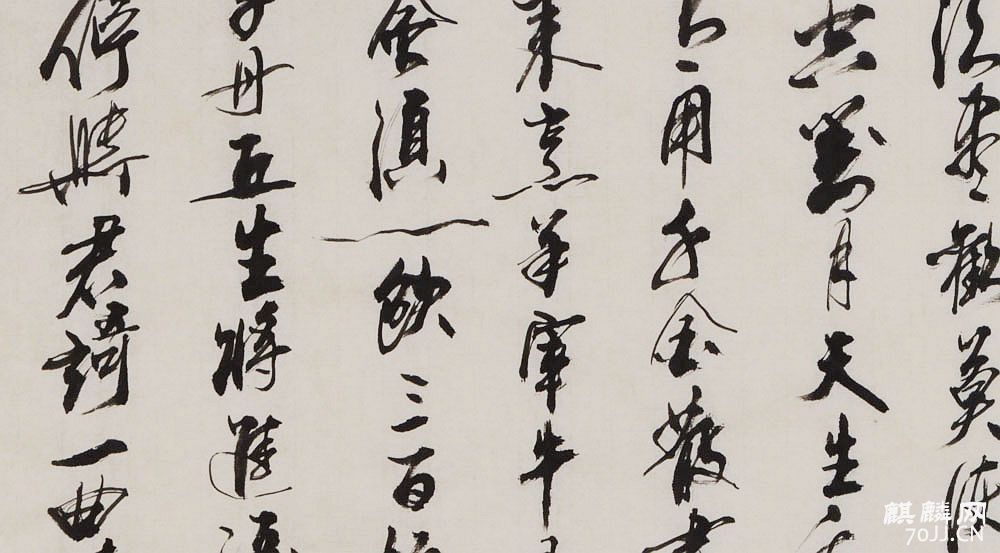 須盡歡莫使
空對月天生
用千金散盡
來烹羊宰牛
會須一飲三百
子丹丘生將進酒
停與君歌一曲
麒麟网
70JJ.CN